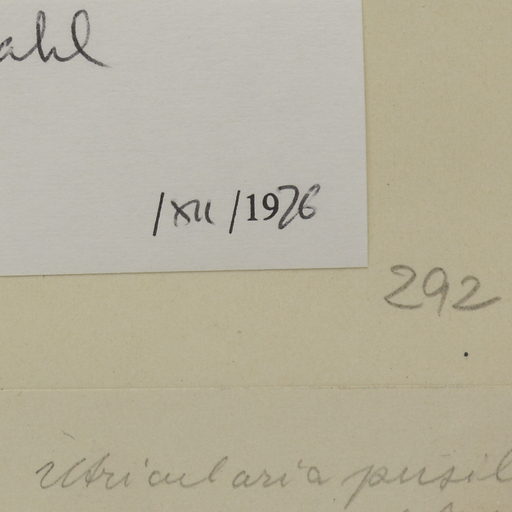 ahl
/XII/1976
292
Utricularia pusil